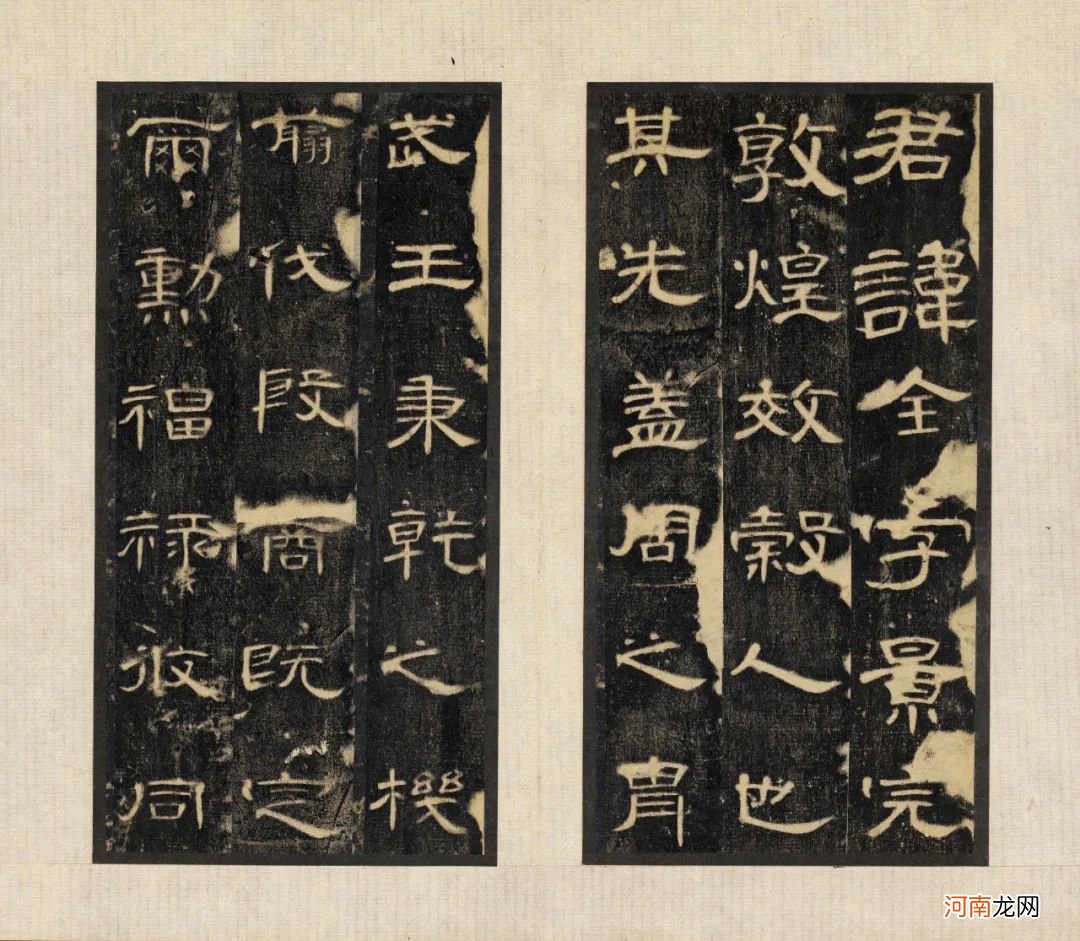 君諱全字景完
敦煌效穀人也
其先盖周之胄
武王秉乾之機
翦伐殷商既定
爾勳福祿攸同
河南龙网